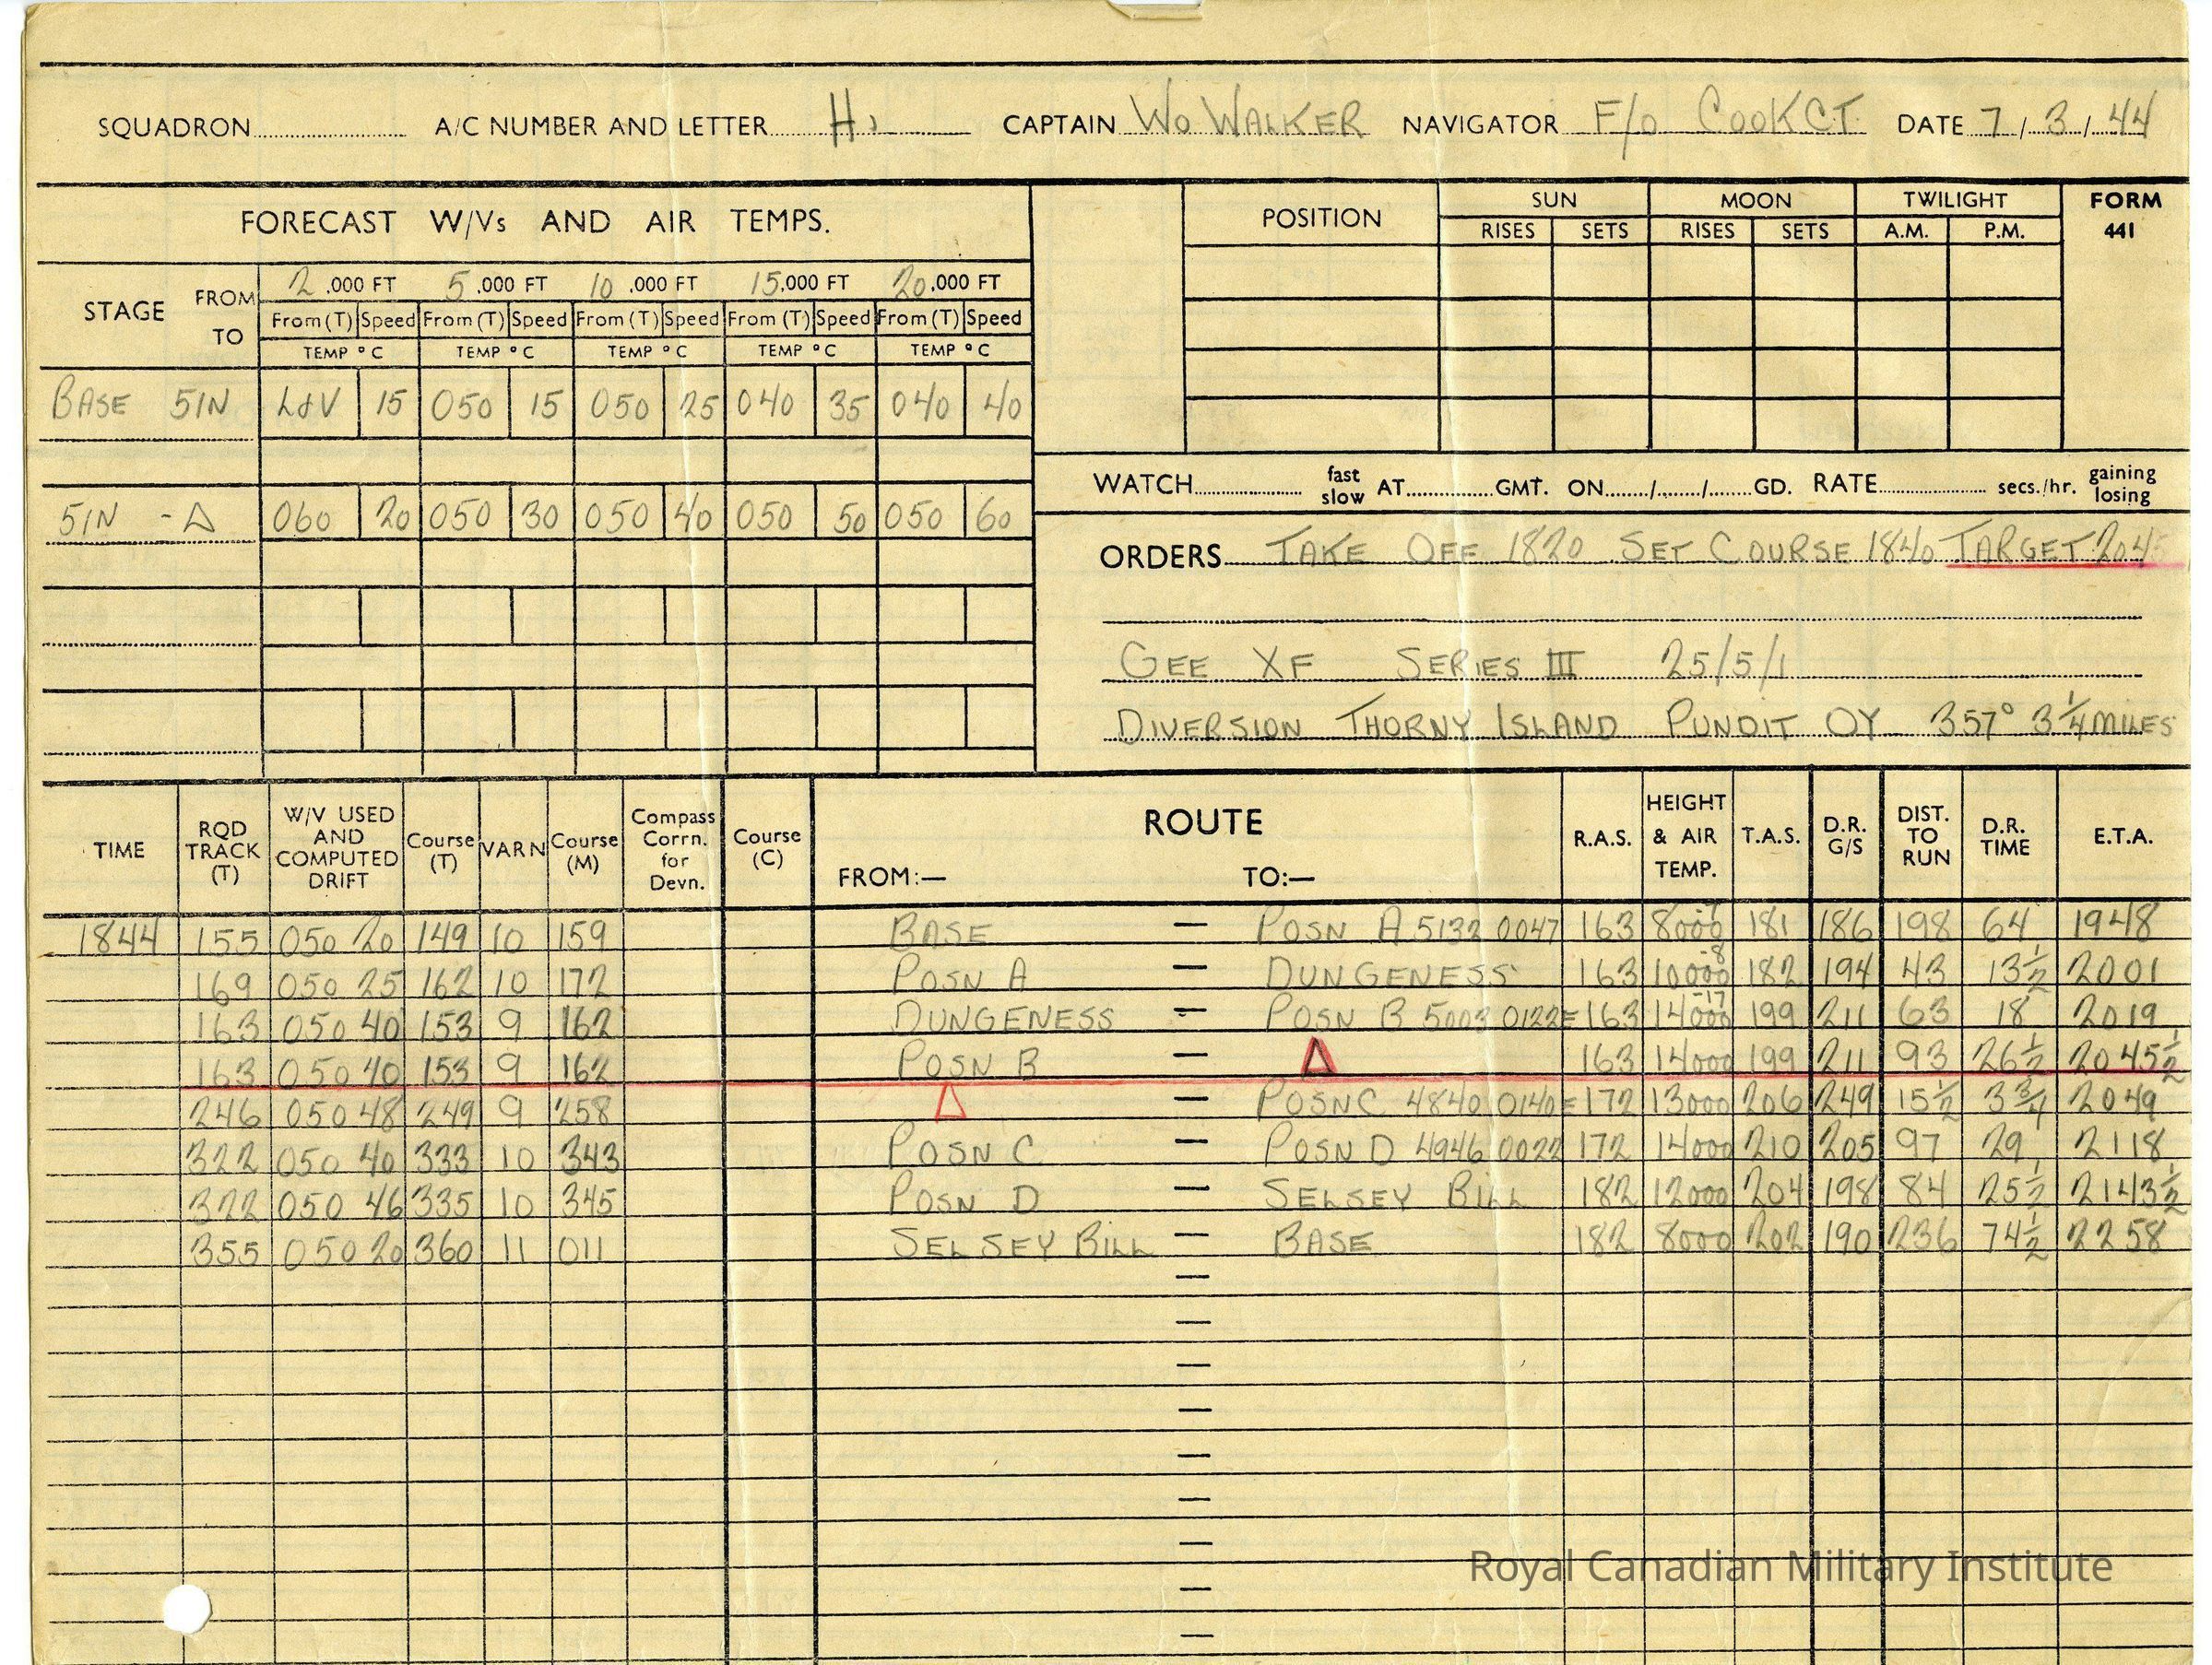 SQUADRON A/C NUMBER AND LETTER H, CAPTAIN Wo WALKER NAVIGATOR F/o COOK CT DATE 7/3/44
FORECAST W/Vs AND AIR TEMPS.
STAGE FROM TO
2.000 FT 5.000 FT 10.000 FT 15.000 FT 20.000 FT
From (T) Speed From (T) Speed From (T) Speed From (T) Speed From (T) Speed
TEMP °C TEMP °C TEMP °C TEMP °C TEMP °C
BASE 51N L&V 15 050 15 050 25 040 35 040 40
51N - Δ 060 20 050 30 050 40 050 50 050 60
POSITION SUN MOON TWILIGHT FORM 441
RISES SETS RISES SETS A.M. P.M.
WATCH fast slow AT GMT. ON / / GD. RATE secs./hr. gaining losing
ORDERS TAKE OFF 1820 SET COURSE 1840 TARGET 2045
GEE XF SERIES III 25/5/1
DIVERSION THORNY ISLAND PUNDIT OY 357° 3 1/4 MILES
TIME RQD TRACK (T) W/V USED AND COMPUTED DRIFT Course (T) VARN Course (M) Compass Corrn. for Devn. Course (C) ROUTE FROM:— TO:— R.A.S. HEIGHT & AIR TEMP. T.A.S. D.R. G/S DIST. TO RUN D.R. TIME E.T.A.
1844 155 050 20 149 10 159 BASE — POSN A 5132 0047 163 8000 181 186 198 64 1948
169 050 25 162 10 172 POSN A — DUNGENESS 163 10000 -8 182 194 43 13 1/2 2001
163 050 40 153 9 162 DUNGENESS — POSN B 5003 0122E 163 14000 -17 199 211 63 18 2019
163 050 40 153 9 162 POSN B — Δ 163 14000 199 211 93 26 1/2 2045 1/2
246 050 48 249 9 258 Δ — POSN C 4840 0140E 172 13000 206 249 15 1/2 3 3/4 2049
322 050 40 333 10 343 POSN C — POSN D 4946 0022 172 14000 210 205 97 29 2118
322 050 46 335 10 345 POSN D — SELSEY BILL 182 12000 204 198 84 25 1/2 2143 1/2
355 050 20 360 11 011 SELSEY BILL — BASE 182 8000 202 190 236 74 1/2 2258
Royal Canadian Military Institute